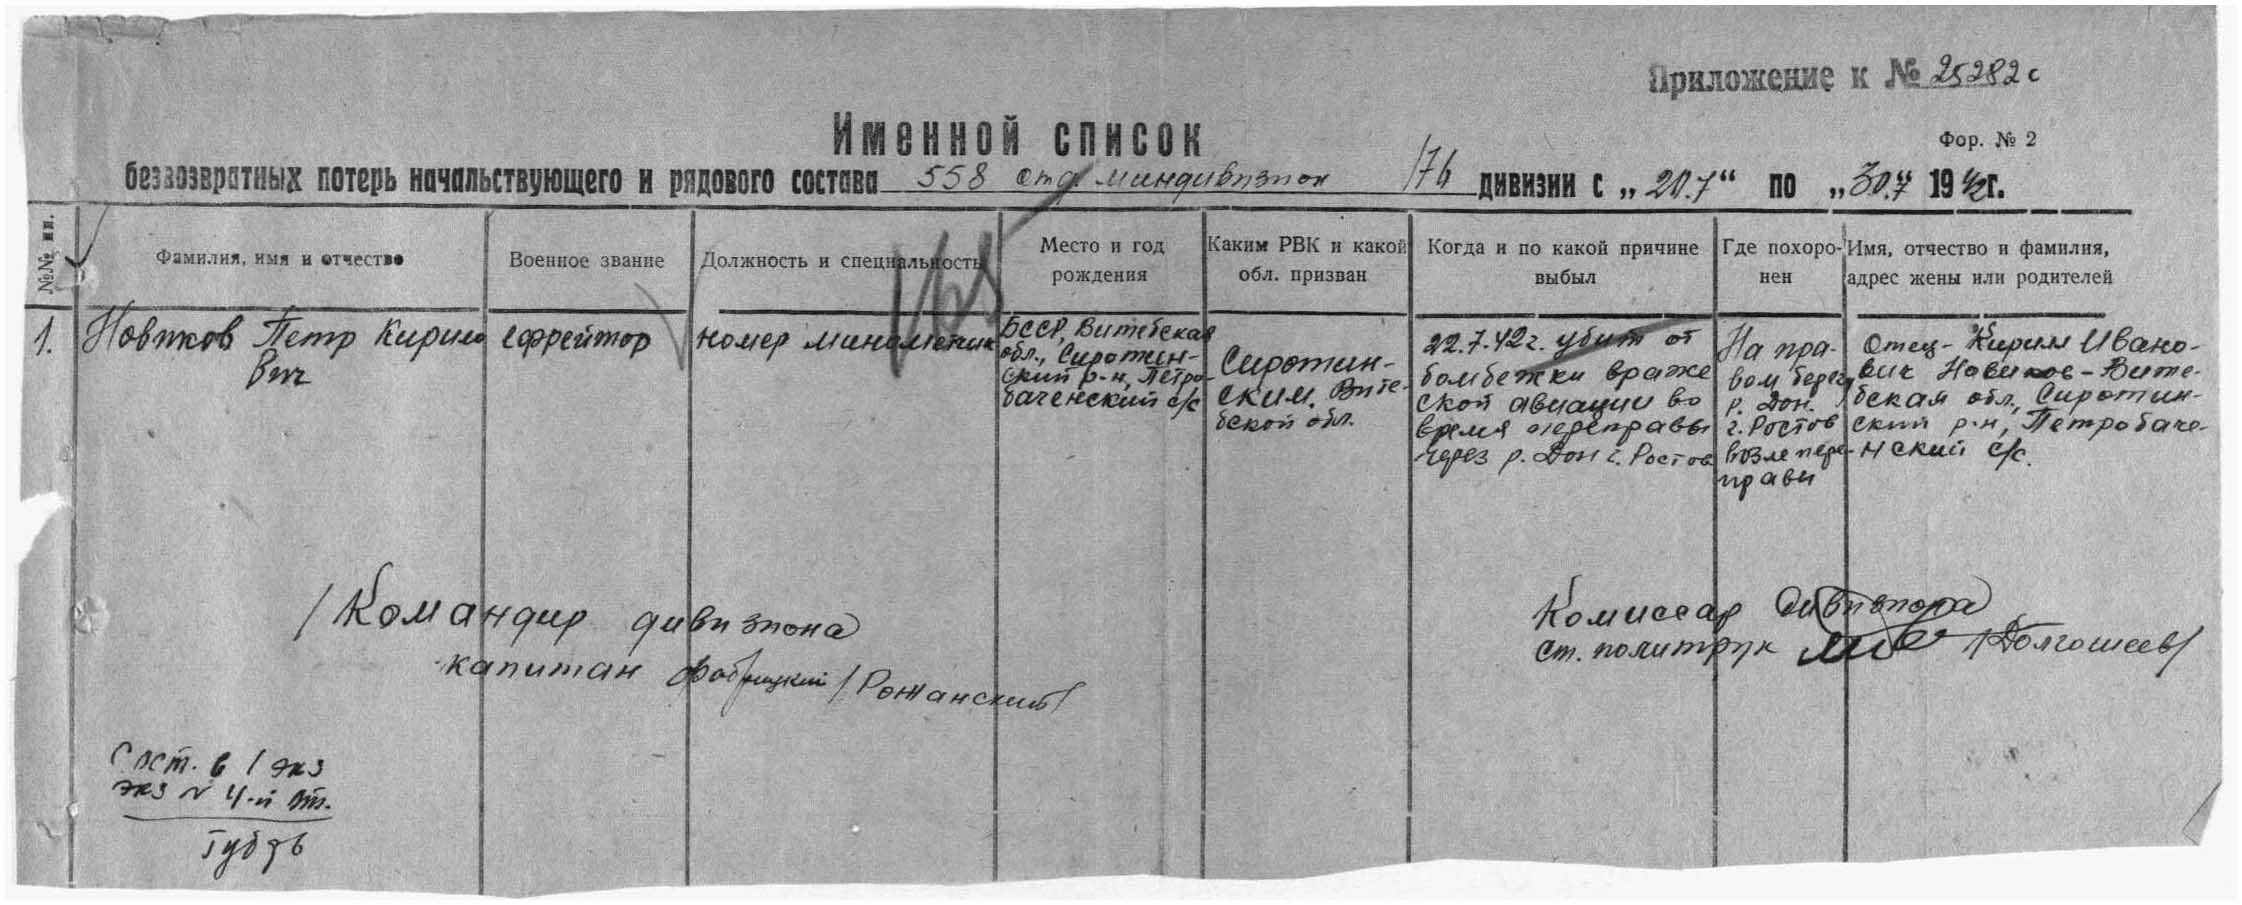 Приложение к № 25282с
Именной список
Фор. № 2
безвозвратных потерь начальствующего и рядового состава 558 отд. миндивизион 176 дивизии с „20.7“ по „30.7 1942г.
№№ пп.
Фамилия, имя и отчество
Военное звание
Должность и специальность
Место и год
рождения
Каким РВК и какой
обл. призван
Когда и по какой причине
выбыл
Где похоро-
нен
Имя, отчество и фамилия,
адрес жены или родителей
1.
Новиков Петр Кирило
вич
ефрейтор
номер минометчик
БССР, Витебская
обл., Сиротин-
ский р-н, Петро-
баченский с/с
Сиротин-
ским, Вите-
бской обл.
22.7.42г. убит от
бомбежки враже
ской авиации во
время переправы
через р. Дон г. Ростов
На пра-
вом берегу
р. Дон.
г. Ростов
возле пере-
прави
Отец - Кирил Ивано-
вич Новиков - Вите-
бская обл., Сиротин-
ский р-н, Петробаче-
нский с/с.
Командир дивизиона
капитан /Рожанский/
Комиссар дивизиона
ст. политрук /Долгошеев/
Сост. в 1 экз
экз 4-й от.